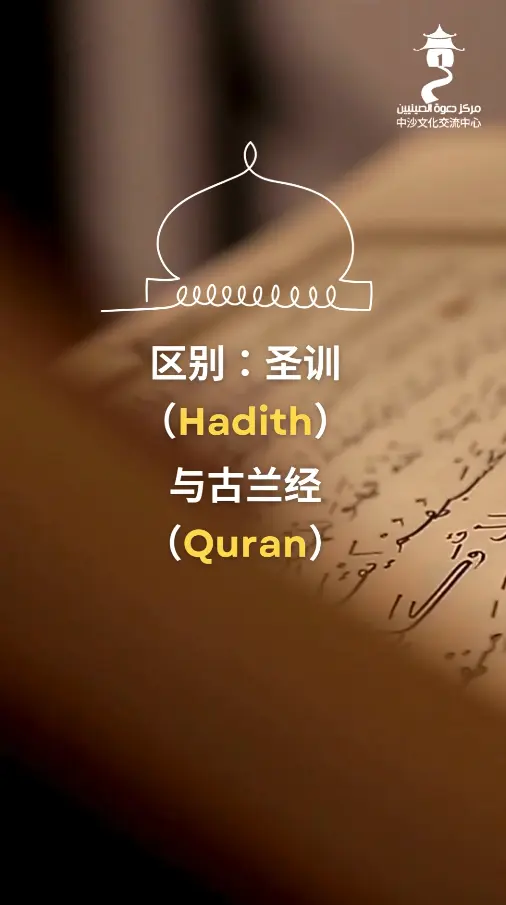 مركز صوة الصينيين
中沙文化交流中心
区别：圣训
（Hadith）
与古兰经
（Quran）